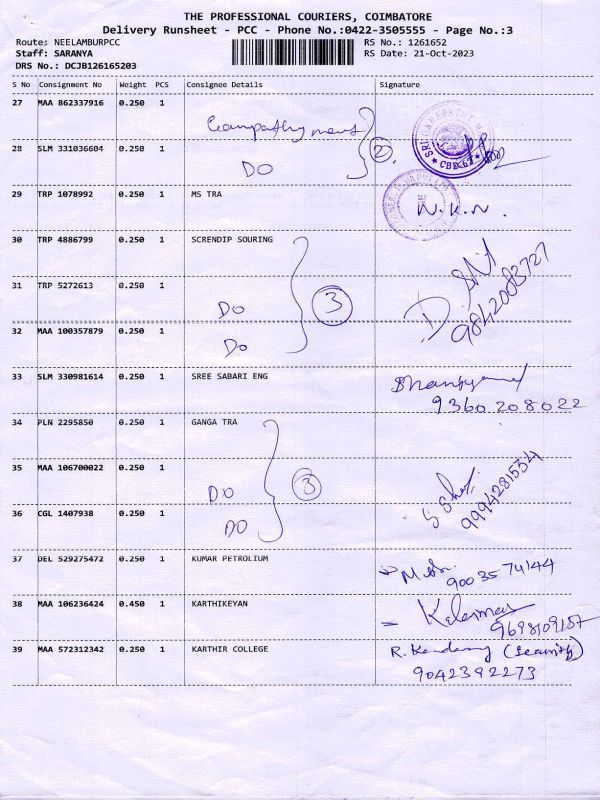 THE PROFESSIONAL COURIERS, COIMBATORE
Delivery Runsheet - PCC - Phone No.:0422-3505555 - Page No.:3
Route: NEELAMBURPCC RS No.: 1261652
Staff: SARANYA RS Date: 21-Oct-2023
DRS No.: DCJB126165203
S No Consignment No Weight PCS Consignee Details Signature
27 MAA 862337916 0.250 1
2
28 SLM 331036604 0.250 1 DO
29 TRP 1078992 0.250 1 MS TRA N.K.N.
30 TRP 4886799 0.250 1 SCRENDIP SOURING
31 TRP 5272613 0.250 1 DO 3 9842083727
32 MAA 100357879 0.250 1 DO
33 SLM 330981614 0.250 1 SREE SABARI ENG
9360208022
34 PLN 2295850 0.250 1 GANGA TRA
35 MAA 106700022 0.250 1 DO 3 9994281534
36 CGL 1407938 0.250 1 DO
37 DEL 529275472 0.250 1 KUMAR PETROLIUM
9003574144
38 MAA 106236424 0.450 1 KARTHIKEYAN
9698109157
39 MAA 572312342 0.250 1 KARTHIR COLLEGE R. (Security)
9042392273